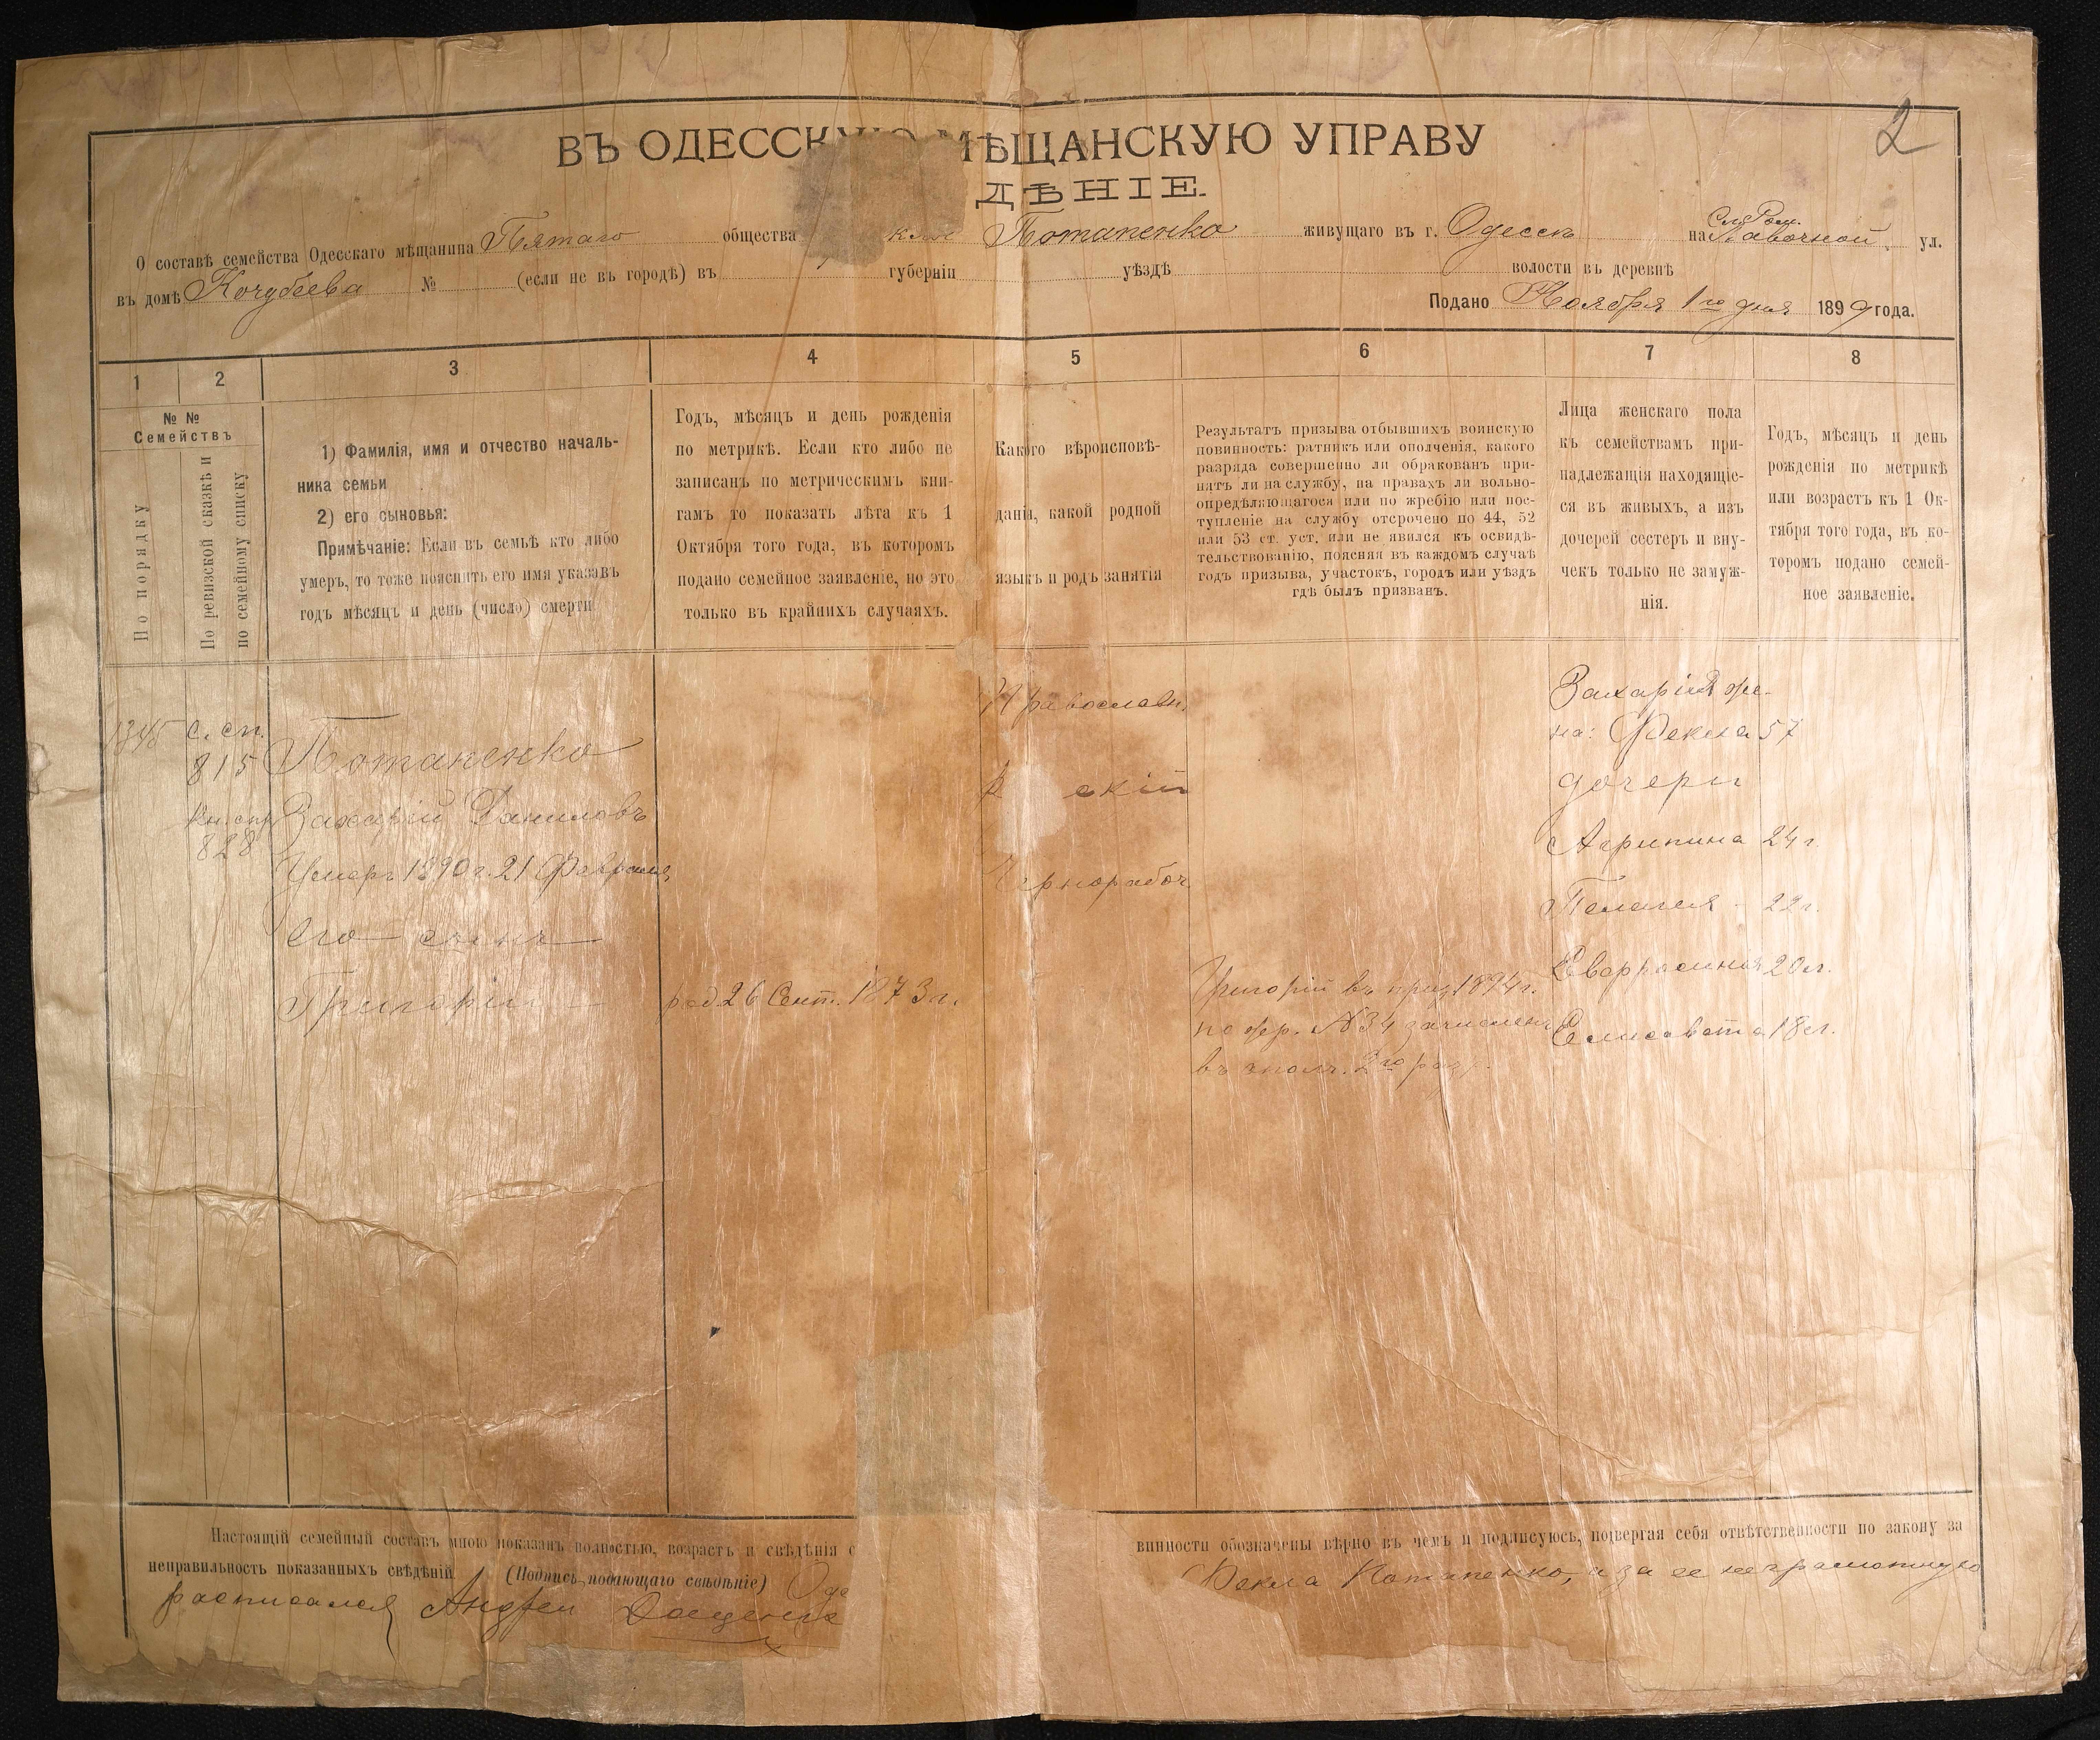 2
ВЪ ОДЕССКУЮ МѢЩАНСКУЮ УПРАВУ
ДѢНІЕ.
О составѣ семейства Одесскаго мѣщанина Пятаго общества Потапенко живущаго въ г. Одессѣ на Сл. Ром. Лавочной ул.
въ домѣ Кочубеева № (если не въ городѣ) въ губерніи уѣздѣ волости въ деревнѣ
Подано Ноября 1го дня 1899 года.
1 2 3 4 5 6 7 8
№ №
Семействъ
По порядку
По ревизской сказкѣ и
по семейному списку
1) Фамилія, имя и отчество началь-
ника семьи
2) его сыновья:
Примѣчаніе: Если въ семьѣ кто либо
умеръ, то тоже пояснить его имя указавъ
годъ мѣсяцъ и день (число) смерти
Годъ, мѣсяцъ и день рожденія
по метрикѣ. Если кто либо не
записанъ по метрическимъ кни-
гамъ то показать лѣта къ 1
Октября того года, въ которомъ
подано семейное заявленіе, но это
только въ крайнихъ случаяхъ.
Какого вѣроисповѣ-
данія, какой родной
языкъ и родъ занятія
Результатъ призыва отбывшихъ воинскую
повинность: ратникъ или ополченія, какого
разряда совершенно ли обракованъ при-
нятъ ли на службу, на правахъ ли вольно-
опредѣляющагося или по жребію или пос-
тупленіе на службу отсрочено по 44, 52
или 53 ст. уст. или не явился къ освидѣ-
тельствованію, поясняя въ каждомъ случаѣ
годъ призыва, участокъ, городъ или уѣздъ
гдѣ былъ призванъ.
Лица женскаго пола
къ семействамъ при-
надлежащія находящіе-
ся въ живыхъ, а изъ
дочерей сестеръ и вну-
чекъ только не замуж-
нія.
Годъ, мѣсяцъ и день
рожденія по метрикѣ
или возрастъ къ 1 Ок-
тября того года, въ ко-
торомъ подано семей-
ное заявленіе.
1345
с. сп.
815
кн. сп.
828
Потапенко
Захарій Даниловъ
Умеръ 1890 г. 21 Февраля,
Его сынъ
Григорій —
род. 26 Сент. 1873 г.
Православн.
скій
Чернорабоч.
Григорій въ приз. 1894 г.
по жр. №34 зачисленъ
въ ополч. 2го разр.
Захарія же-
на: Фекла 57
дочери
Агрипина 24 г.
Пелагея - 22 г.
Евфросинія 20 л.
Елисавета 18 л.
Настоящій семейный составъ мною показанъ полностью, возрастъ и свѣдѣнія о винности обозначены вѣрно въ чемъ и подписуюсь, подвергая себя отвѣтственности по закону за
неправильность показанныхъ свѣдѣній (Подпись подающаго свѣдѣніе) Оде Фекла Потапенко, а за ее неграмотную
расписался Андрей